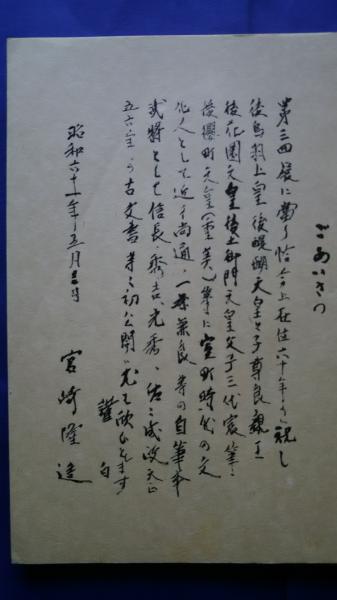 ごあいさつ
第三回展に當り恰も今上在位六十年を祝し
後鳥羽上皇後醍醐天皇皇子尊良親王
後花園天皇後土御門天皇父子三代宸筆
後櫻町天皇(重美)筆に室町時代の文
化人として近衛尚通、一条兼良等の自筆本
武将として信長、秀吉、光秀、佐々成政天正
五六年の古文書等初公開
謹白
昭和六十一年五月吉日
宮崎隆造